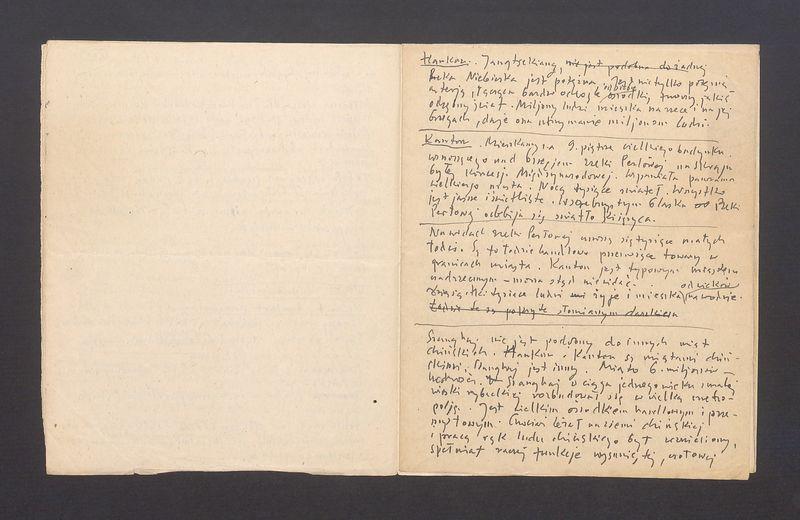 Hankou. Jangtsekiang, nie jest podobna do żadnej
Rzeka Niebieska jest potężna. Jest nie tylko potężną
arterią, łączącą bardzo odległe ośrodki
odżywia świat. Miljony ludzi mieszka na rzece i na jej
brzegach, daje ona utrzymanie miljonom ludzi.
Kanton. Mieszkamy na 9. piętrze wielkiego budynku
wznoszącego nad brzegiem rzeki Perłowej na skraju
byłej koncesji Międzynarodowej. Wspaniała panorama
wielkiego miasta. Nocą tysiące świateł. Wszystko
jest jasne i świetliste. W srebrzystym blasku Rzeki
Perłowej odbija się światło księżyca.
Na wodach rzeki Perłowej unoszą się tysiące małych
łodzi. Są to łodzie handlowe przewożące towary w
granicach miasta. Kanton jest typowym miastem
nadrzecznym – morza stąd nie widać. od wieków
tysiące ludzi żyje i mieszka na wodzie.
Łodzie te są pokryte słomianym daszkiem
Szanghaj nie jest podobny do innych miast
chińskich. Hankou, Kanton są miastami chiń-
skimi, Szanghaj jest inny. Miasto 6. miljonów
ludności. Szanghaj w ciągu jednego wieku z małej
wioski rybackiej rozbudował się w wielką metro-
polję. Jest wielkim ośrodkiem handlowym i prze-
mysłowym. Chociaż leżał na ziemi chińskiej
i pracą rąk ludu chińskiego był wzniesiony,
spełniał raczej funkcje wysuniętej, czołowej